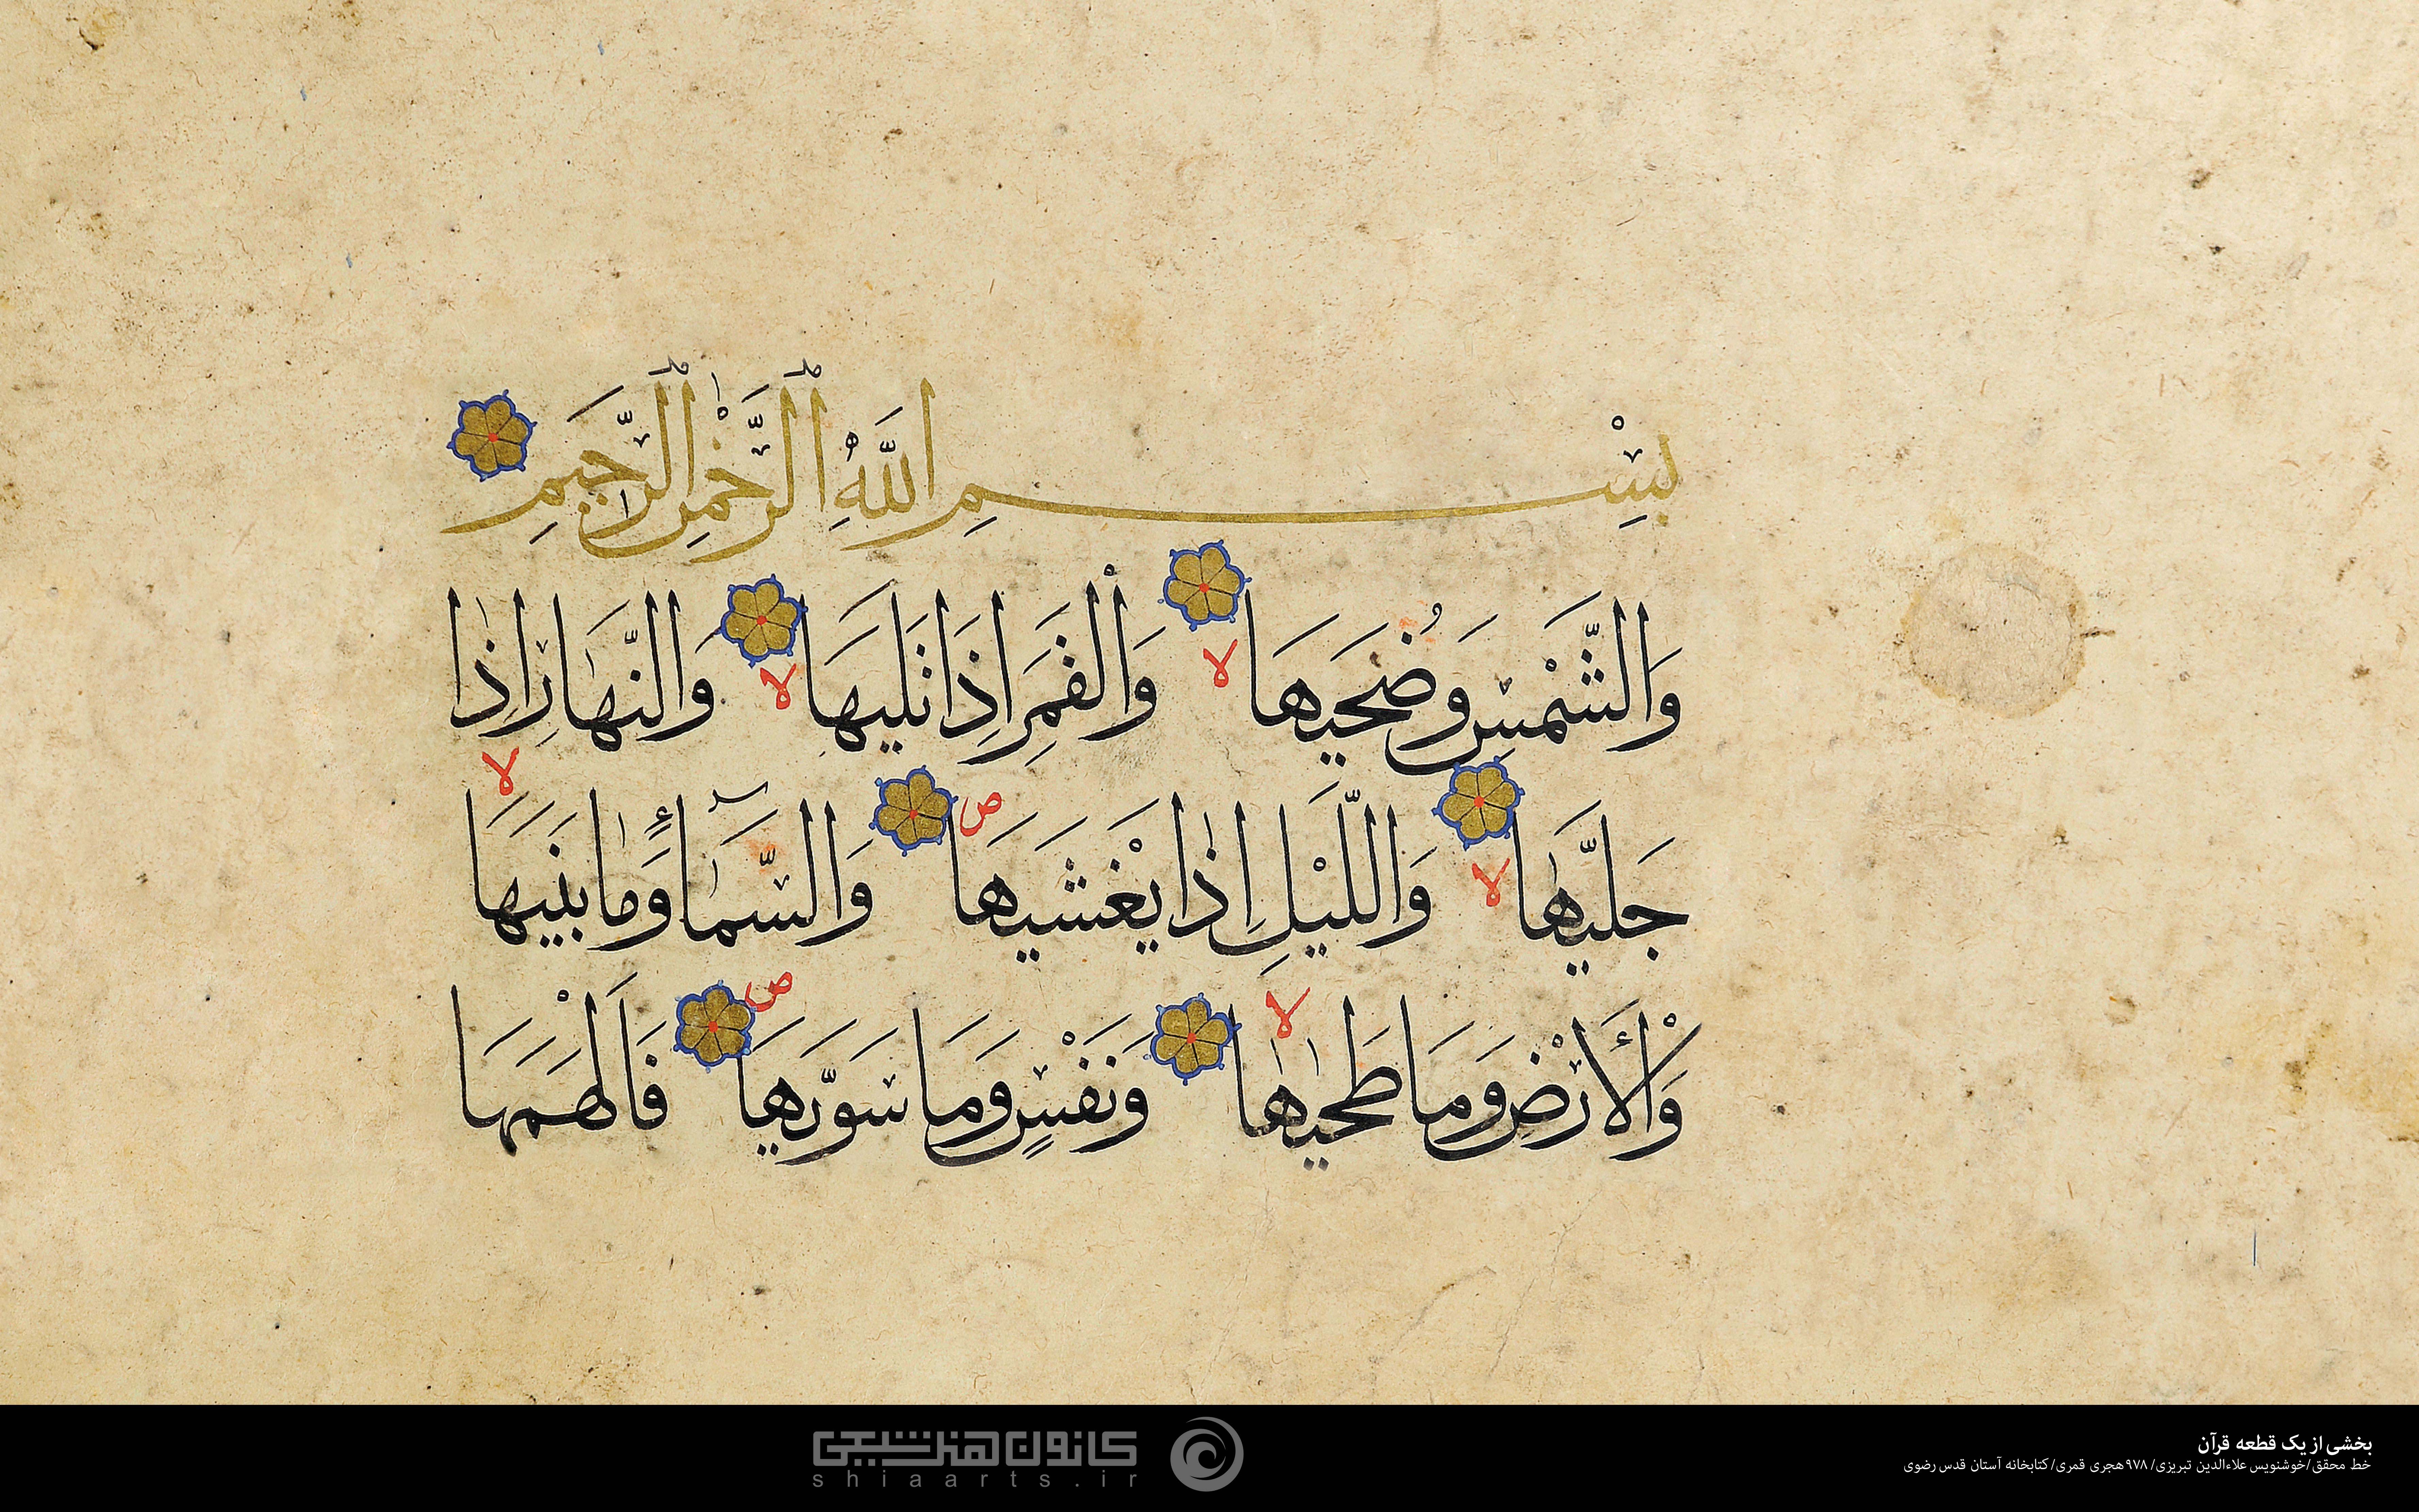 بِسْمِ اللَّهِ الرَّحْمٰنِ الرَّحِيمِ
وَالشَّمْسِ وَضُحَيهَا لا وَالْقَمَرِ اِذَا تَلَيهَا لا وَالنَّهَارِ اِذٰا
جَلَّيهٰا لا وَاللَّيْلِ اِذٰا يَغْشَيهَا ص وَالسَّمٰآءِ وَمٰا بَنَيهَا لا
وَالْأَرْضِ وَمَا طَحٰيهٰا لا وَنَفْسٍ وَمَا سَوَّيهَا ص فَاَلْهَمَهَا
بخشی از یک قطعه قرآن
خط محقق/خوشنویس علاءالدین تبریزی/ ۹۷۸ هجری قمری/ کتابخانه آستان قدس رضوی
کانون هنر شیعی
shiaarts.ir